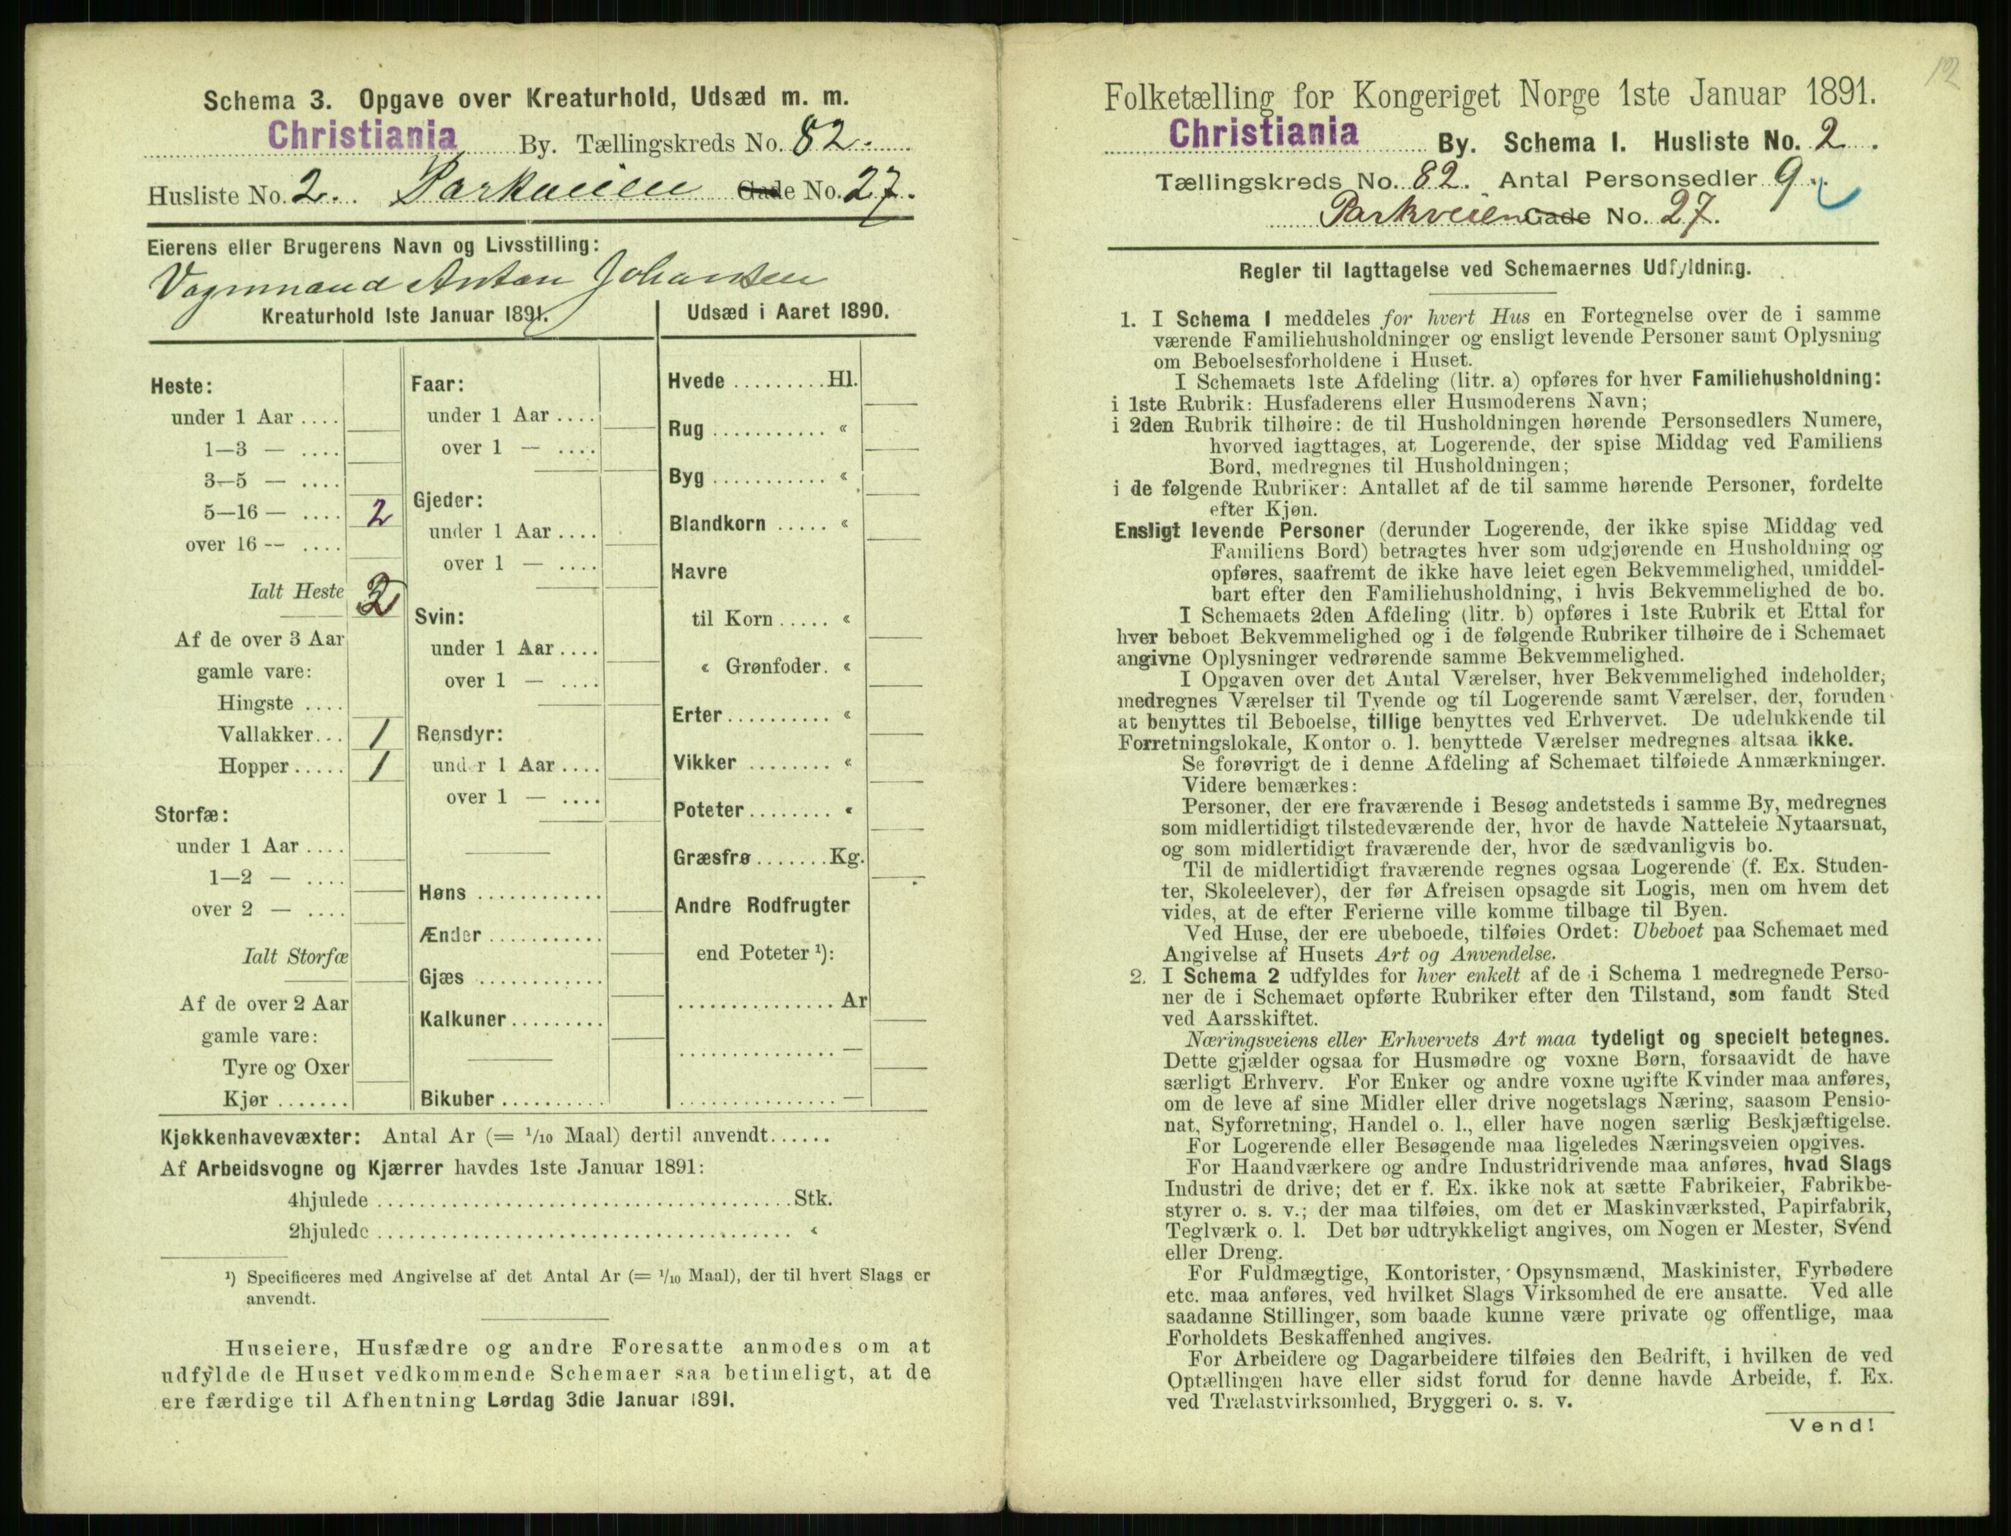 Schema 3. Opgave over Kreaturhold, Udsæd m. m.
Christiania By. Tællingskreds No. 82.
Husliste No. 2. Parkveien Gade No. 27.
Eierens eller Brugerens Navn og Livsstilling:
Vognmand Anton Johansen
Kreaturhold 1ste Januar 1891.
Heste:
under 1 Aar ....
1—3 — ....
3—5 — ....
5—16 — .... 2
over 16 -- ....
Ialt Heste 2
Af de over 3 Aar
gamle vare:
Hingste ....
Vallakker... 1
Hopper ..... 1
Storfæ:
under 1 Aar ....
1—2 — ....
over 2 — ....
Ialt Storfæ
Af de over 2 Aar
gamle vare:
Tyre og Oxer
Kjør .......
Faar:
under 1 Aar ....
over 1 — ....
Gjeder:
under 1 Aar ....
over 1 — ....
Svin:
under 1 Aar ....
over 1 — ....
Rensdyr:
under 1 Aar ....
over 1 — ....
Høns ............
Ænder ...........
Gjæs ............
Kalkuner .........
Bikuber ..........
Udsæd i Aaret 1890.
Hvede ......... Hl.
Rug ........... «
Byg ........... «
Blandkorn ..... «
Havre
til Korn ..... «
« Grønfoder. «
Erter .......... «
Vikker ........ «
Poteter ........ «
Græsfrø ....... Kg.
Andre Rodfrugter
end Poteter ¹):
............... Ar
............... —
............... —
Kjøkkenhavevæxter: Antal Ar (= 1/10 Maal) dertil anvendt......
Af Arbeidsvogne og Kjærrer havdes 1ste Januar 1891:
4hjulede ........................................ Stk.
2hjulede ........................................ «
¹) Specificeres med Angivelse af det Antal Ar (= 1/10 Maal), der til hvert Slags er
anvendt.
Huseiere, Husfædre og andre Foresatte anmodes om at
udfylde de Huset vedkommende Schemaer saa betimeligt, at de
ere færdige til Afhentning Lørdag 3die Januar 1891.
12
Folketælling for Kongeriget Norge 1ste Januar 1891.
Christiania By. Schema I. Husliste No. 2.
Tællingskreds No. 82. Antal Personsedler 9.
Parkveien Gade No. 27.
Regler til Iagttagelse ved Schemaernes Udfyldning.
1. I Schema I meddeles for hvert Hus en Fortegnelse over de i samme
værende Familiehusholdninger og ensligt levende Personer samt Oplysning
om Beboelsesforholdene i Huset.
I Schemaets 1ste Afdeling (litr. a) opføres for hver Familiehusholdning:
i 1ste Rubrik: Husfaderens eller Husmoderens Navn;
i 2den Rubrik tilhøire: de til Husholdningen hørende Personsedlers Numere,
hvorved iagttages, at Logerende, der spise Middag ved Familiens
Bord, medregnes til Husholdningen;
i de følgende Rubriker: Antallet af de til samme hørende Personer, fordelte
efter Kjøn.
Ensligt levende Personer (derunder Logerende, der ikke spise Middag ved
Familiens Bord) betragtes hver som udgjørende en Husholdning og
opføres, saafremt de ikke have leiet egen Bekvemmelighed, umiddel-
bart efter den Familiehusholdning, i hvis Bekvemmelighed de bo.
I Schemaets 2den Afdeling (litr. b) opføres i 1ste Rubrik et Ettal for
hver beboet Bekvemmelighed og i de følgende Rubriker tilhøire de i Schemaet
angivne Oplysninger vedrørende samme Bekvemmelighed.
I Opgaven over det Antal Værelser, hver Bekvemmelighed indeholder,
medregnes Værelser til Tyende og til Logerende samt Værelser, der, foruden
at benyttes til Beboelse, tillige benyttes ved Erhvervet. De udelukkende til
Forretningslokale, Kontor o. l. benyttede Værelser medregnes altsaa ikke.
Se forøvrigt de i denne Afdeling af Schemaet tilføiede Anmærkninger.
Videre bemærkes:
Personer, der ere fraværende i Besøg andetsteds i samme By, medregnes
som midlertidigt tilstedeværende der, hvor de havde Natteleie Nytaarsnat,
og som midlertidigt fraværende der, hvor de sædvanligvis bo.
Til de midlertidigt fraværende regnes ogsaa Logerende (f. Ex. Studen-
ter, Skoleelever), der før Afreisen opsagde sit Logis, men om hvem det
vides, at de efter Ferierne ville komme tilbage til Byen.
Ved Huse, der ere ubeboede, tilføies Ordet: Ubeboet paa Schemaet med
Angivelse af Husets Art og Anvendelse.
2. I Schema 2 udfyldes for hver enkelt af de i Schema 1 medregnede Perso-
ner de i Schemaet opførte Rubriker efter den Tilstand, som fandt Sted
ved Aarsskiftet.
Næringsveiens eller Erhvervets Art maa tydeligt og specielt betegnes.
Dette gjælder ogsaa for Husmødre og voxne Børn, forsaavidt de have
særligt Erhverv. For Enker og andre voxne ugifte Kvinder maa anføres,
om de leve af sine Midler eller drive nogetslags Næring, saasom Pensio-
nat, Syforretning, Handel o. l., eller have nogen særlig Beskjæftigelse.
For Logerende eller Besøgende maa ligeledes Næringsveien opgives.
For Haandværkere og andre Industridrivende maa anføres, hvad Slags
Industri de drive; det er f. Ex. ikke nok at sætte Fabrikeier, Fabrikbe-
styrer o. s. v.; der maa tilføies, om det er Maskinværksted, Papirfabrik,
Teglværk o. l. Det bør udtrykkeligt angives, om Nogen er Mester, Svend
eller Dreng.
For Fuldmægtige, Kontorister, Opsynsmænd, Maskinister, Fyrbødere
etc. maa anføres, ved hvilket Slags Virksomhed de ere ansatte. Ved alle
saadanne Stillinger, som baade kunne være private og offentlige, maa
Forholdets Beskaffenhed angives.
For Arbeidere og Dagarbeidere tilføies den Bedrift, i hvilken de ved
Optællingen have eller sidst forud for denne havde Arbeide, f. Ex.
ved Trælastvirksomhed, Bryggeri o. s. v.
Vend!